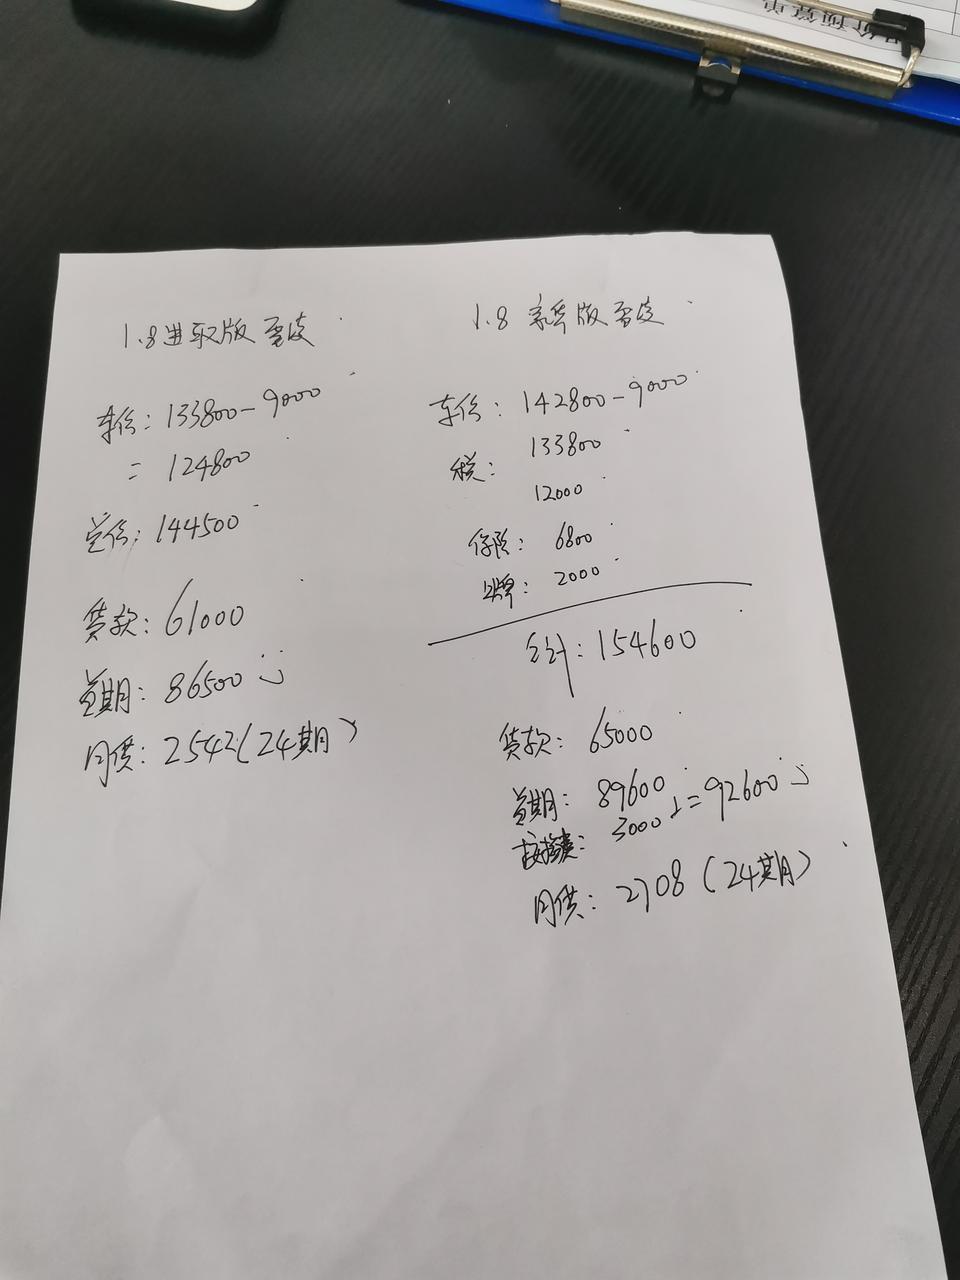 1.8进取版雷凌
车价:133800-9000
=124800
总价:144500
贷款:61000
首期:86500
月供:2542(24期)
1.8豪华版雷凌
车价:142800-9000
133800
税:
12000
保险:6800
上牌:2000
合计:154600
贷款:65000
首期:89600
按揭费:3000
=92600
月供:2708(24期)